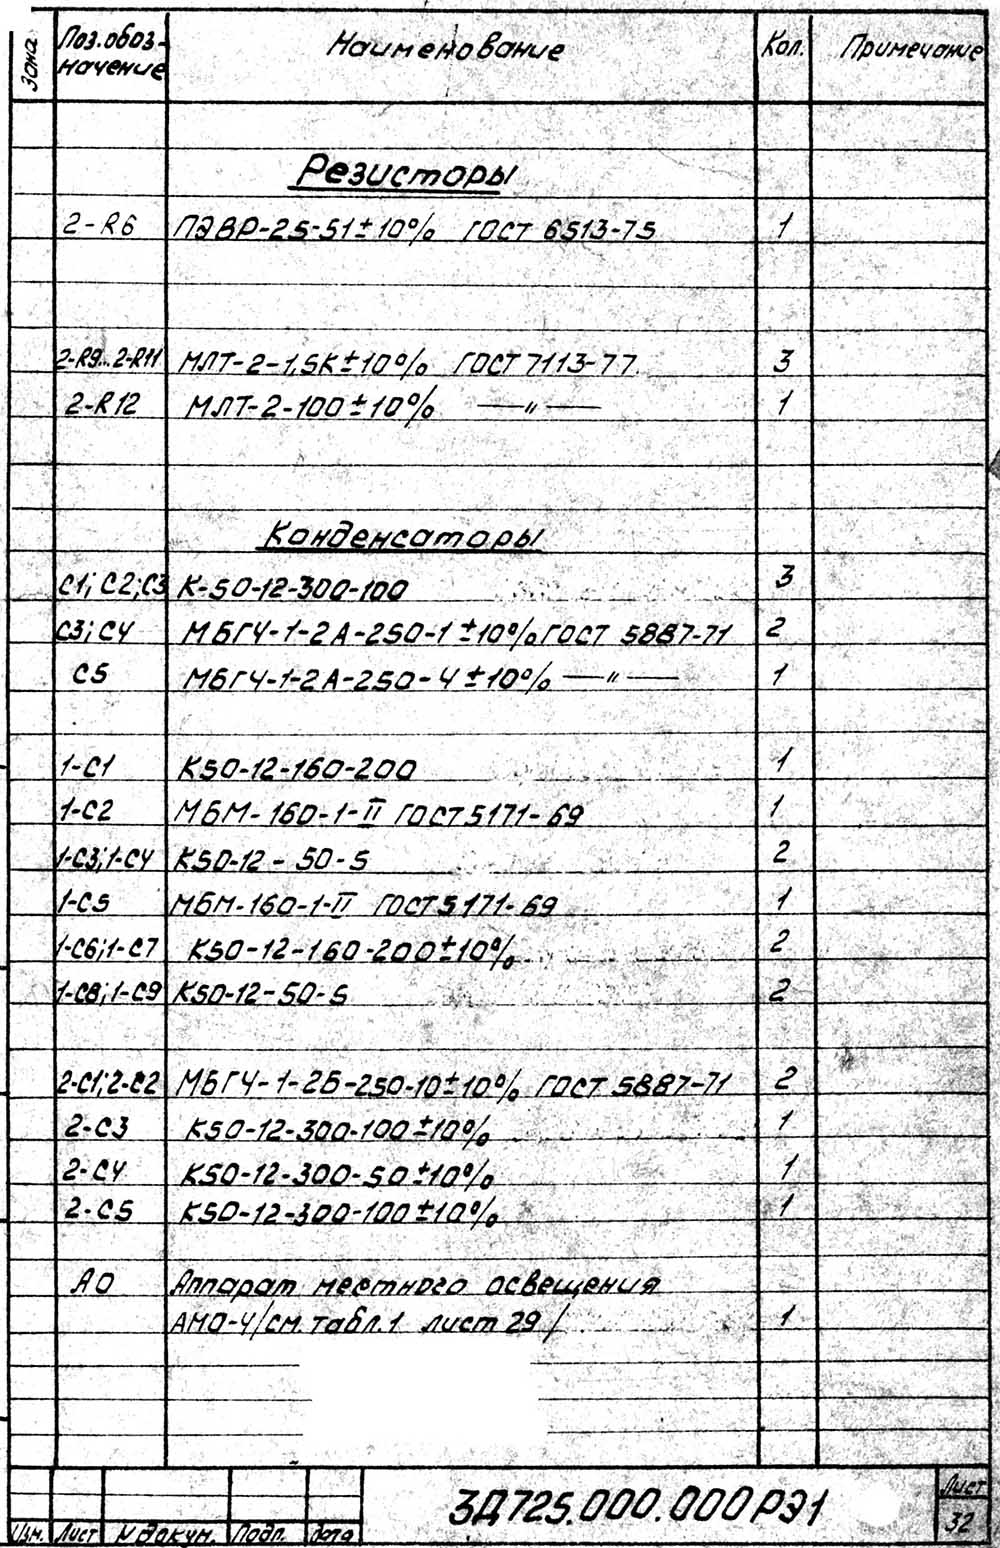 Зона
Поз.обоз-
начение
Наименование
Кол.
Примечание
Резисторы
2-R6 ПЭВР-25-51±10% ГОСТ 6513-75 1
2-R9...2-R11 МЛТ-2-1,5К±10% ГОСТ 7113-77 3
2-R12 МЛТ-2-100±10% —"— 1
Конденсаторы
С1; С2; С3 К-50-12-300-100 3
С3; С4 МБГЧ-1-2А-250-1±10% ГОСТ 5887-71 2
С5 МБГЧ-1-2А-250-4±10% —"— 1
1-С1 К50-12-160-200 1
1-С2 МБМ-160-1-II ГОСТ 5171-69 1
1-С3; 1-С4 К50-12-50-5 2
1-С5 МБМ-160-1-II ГОСТ 5171-69 1
1-С6; 1-С7 К50-12-160-200±10% 2
1-С8; 1-С9 К50-12-50-5 2
2-С1; 2-С2 МБГЧ-1-2Б-250-10±10% ГОСТ 5887-71 2
2-С3 К50-12-300-100±10% 1
2-С4 К50-12-300-50±10% 1
2-С5 К50-12-300-100±10% 1
А0 Аппарат местного освещения
АМО-4/см. табл.1 лист 29/ 1
Изм. Лист N докум. Подп. Дата
3Д725.000.000РЭ1
Лист
32